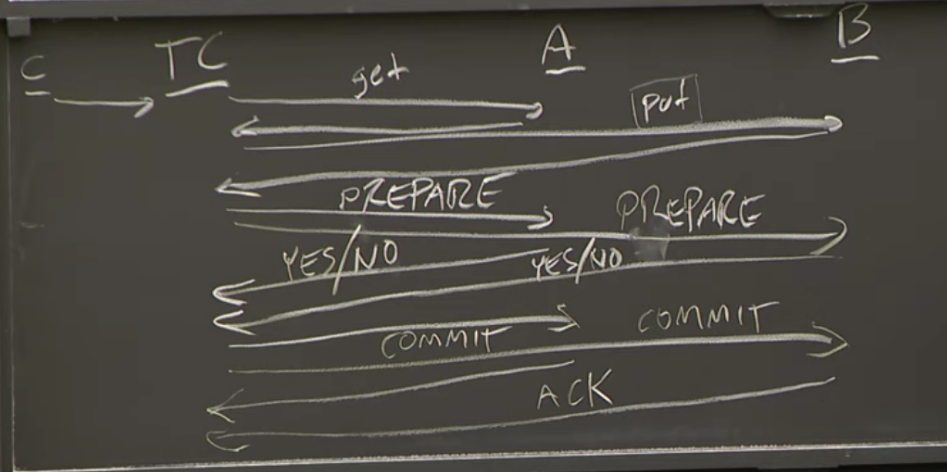 C TC A B
get
put
PREPARE PREPARE
YES/NO YES/NO
COMMIT COMMIT
ACK